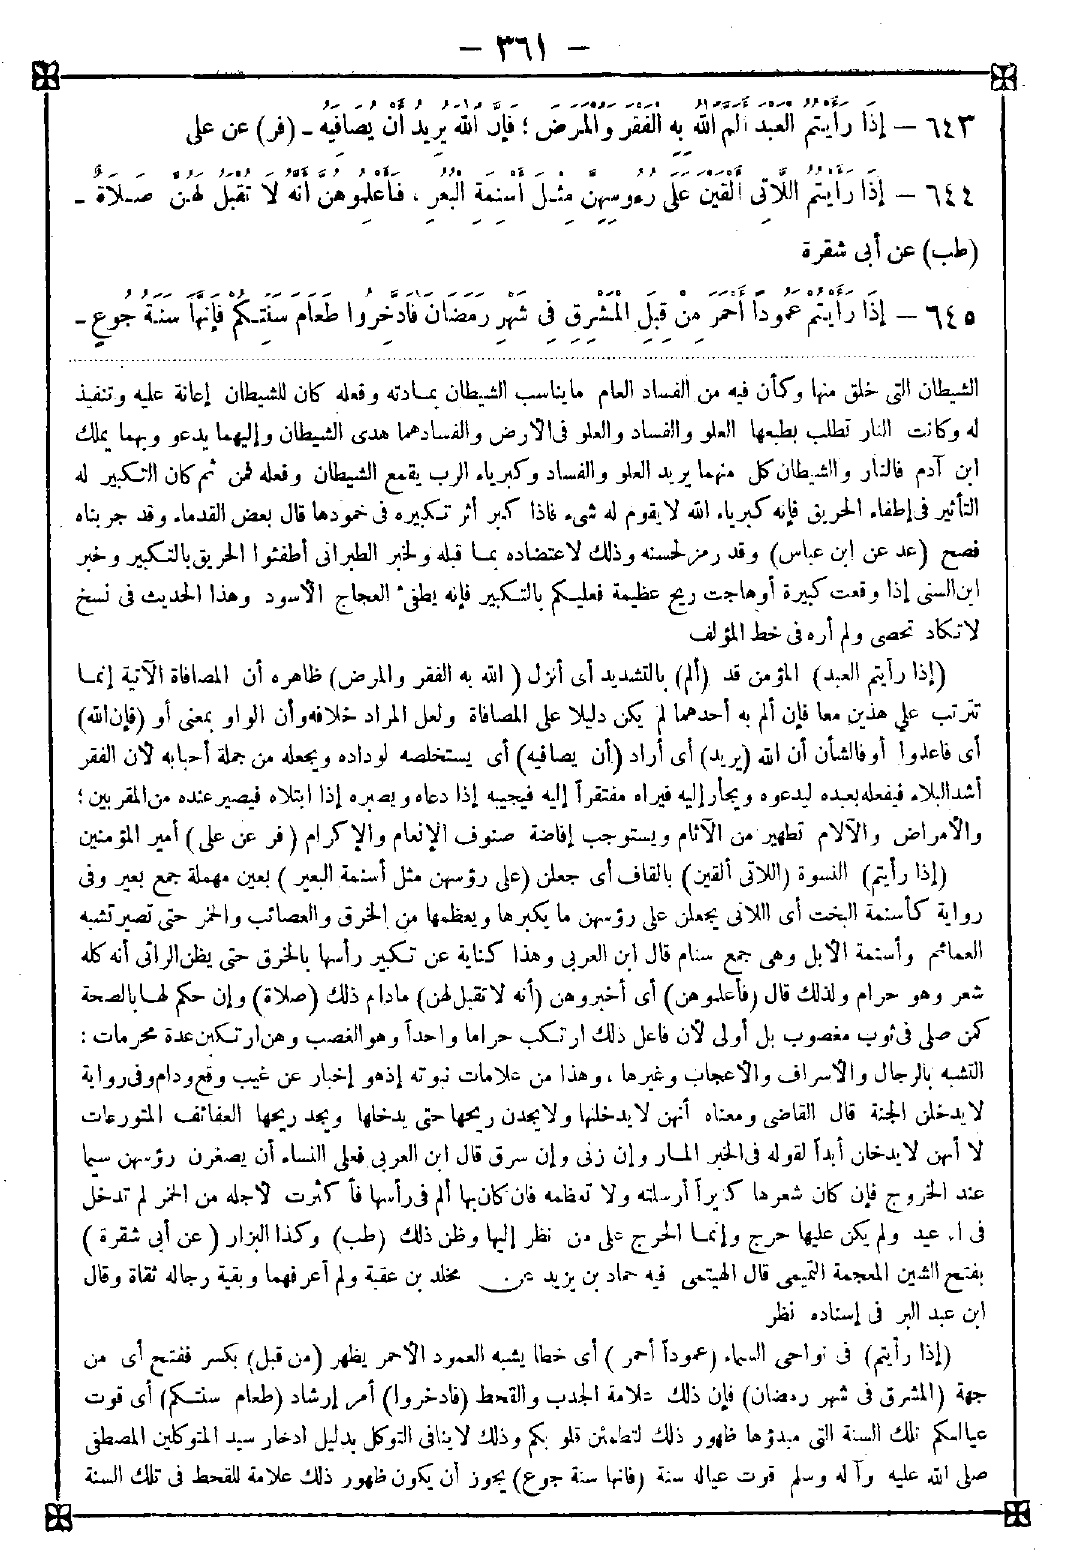 — ٣٦١ —
٦٤٣ — إِذَا رَأَيْتُمُ الْعَبْدَ أَلَمَّ اللهُ بِهِ الْفَقْرَ وَالْمَرَضَ ؛ فَإِنَّ اللهَ يُرِيدُ أَنْ يُصَافِيَهُ - (فر) عن على
٦٤٤ — إِذَا رَأَيْتُمُ اللَّاتِى أَلْقَيْنَ عَلَى رُءُوسِهِنَّ مِثْلَ أَسْنِمَةِ الْبَعَرِ ، فَأَعْلِمُوهُنَّ أَنَّهُ لَا تُقْبَلُ لَهُنَّ صَلَاةٌ -
(طب) عن أبى شقرة
٦٤٥ — إِذَا رَأَيْتُمْ عَمُودًا أَحْمَرَ مِنْ قِبَلِ الْمَشْرِقِ فِى شَهْرِ رَمَضَانَ فَادَّخِرُوا طَعَامَ سَنَتِكُمْ فَإِنَّهَا سَنَةُ جُوعٍ -
الشيطان التى خلق منها وكأن فيه من الفساد العام مايناسب الشيطان بمادته وفعله كان للشيطان إعانة عليه وتنفيذ
له وكانت النار تطلب بطبعها العلو والفساد والعلو فى الأرض والفسادهما هدى الشيطان وإليهما يدعو وبهما يملك
ابن آدم فالنار والشيطان كل منهما يريد العلو والفساد وكبرياء الرب يقمع الشيطان وفعله فمن ثم كان التكبير له
التأثير فى إطفاء الحريق فإنه كبرياء الله لا يقوم له شىء فاذا كبر أثر تكبيره فى خمودها قال بعض القدماء وقد جربناه
فصح (عد عن ابن عباس) وقد رمز لحسنه وذلك لاعتضاده بما قبله ولخبر الطبرانى أطفئوا الحريق بالتكبير وخبر
ابن السنى إذا وقعت كبيرة أوهاجت ريح عظيمة فعليكم بالتكبير فإنه يطفئ العجاج الأسود وهذا الحديث فى نسخ
لا تكاد تحصى ولم أره فى خط المؤلف
(إذا رأيتم العبد) المؤمن قد (ألم) بالتشديد أى أنزل (الله به الفقر والمرض) ظاهره أن المصافاة الآتية إنما
تترتب على هذين معا فإن ألم به أحدهما لم يكن دليلا على المصافاة ولعل المراد خلافه وأن الواو بمعنى أو (فإن الله)
أى فاعلموا أو فالشأن أن الله (يريد) أى أراد (أن يصافيه) أى يستخلصه لوداده ويجعله من جملة أحبابه لأن الفقر
أشد البلاء فيفعله بعبده ليدعوه ويجأر إليه فيراه مفتقراً إليه فيجيبه إذا دعاه ويصبره إذا ابتلاه فيصير عنده من المقربين ؛
والأمراض والآلام تطهير من الآثام ويستوجب إفاضة صنوف الإنعام والإكرام (فر عن على) أمير المؤمنين
(إذا رأيتم) النسوة (اللاتى ألقين) بالقاف أى جعلن (على رؤسهن مثل أسنمة البعير) بعين مهملة جمع بعير وفى
رواية كأسنمة البخت أى اللاتى يجعلن على رؤسهن ما يكبرها ويعظمها من الخرق والعصائب والخمر حتى تصير تشبه
العمائم وأسنمة الأبل وهى جمع سنام قال ابن العربى وهذا كناية عن تكبير رأسها بالخرق حتى يظن الرائى أنه كله
شعر وهو حرام ولذلك قال (فأعلموهن) أى أخبروهن (أنه لا تقبل لهن) مادام ذلك (صلاة) وإن حكم لها بالصحة
كمن صلى فى ثوب مغصوب بل أولى لأن فاعل ذلك ارتكب حراما واحداً وهو الغصب وهن ارتكبن عدة محرمات :
التشبه بالرجال والأسراف والأعجاب وغيرها ، وهذا من علامات نبوته إذ هو إخبار عن غيب وقع ودام وفى رواية
لا يدخلن الجنة قال القاضى ومعناه أنهن لا يدخلنها ولا يجدن ريحها حتى يدخلها ويجد ريحها العفائف المتورعات
لا أنهن لا يدخلن أبداً لقوله فى الخبر المار وإن زنى وإن سرق قال ابن العربى فعلى النساء أن يصغرن رؤسهن سيما
عند الخروج فإن كان شعرها كثيراً أرسلته ولا تعظمه فان كان بها ألم فى رأسها فأكثرت لأجله من الخمر لم تدخل
فى الوعيد ولم يكن عليها حرج وإنما الحرج على من نظر إليها وظن ذلك (طب) وكذا البزار (عن أبى شقرة)
بفتح الشين المعجمة التميمى قال الهيتمى فيه حماد بن يزيد عن مخلد بن عقبة ولم أعرفهما وبقية رجاله ثقاة وقال
ابن عبد البر فى إسناده نظر
(إذا رأيتم) فى نواحى السماء (عموداً أحمر) أى خطا يشبه العمود الأحمر يظهر (من قبل) بكسر ففتح أى من
جهة (المشرق فى شهر رمضان) فإن ذلك علامة الجدب والقحط (فادخروا) أمر إرشاد (طعام سنتكم) أى قوت
عيالكم تلك السنة التى مبدؤها ظهور ذلك لتطمئن قلوبكم وذلك لا ينافى التوكل بدليل ادخار سيد المتوكلين المصطفى
صلى الله عليه وآله وسلم قوت عياله سنة (فإنها سنة جوع) يجوز أن يكون ظهور ذلك علامة للقحط فى تلك السنة